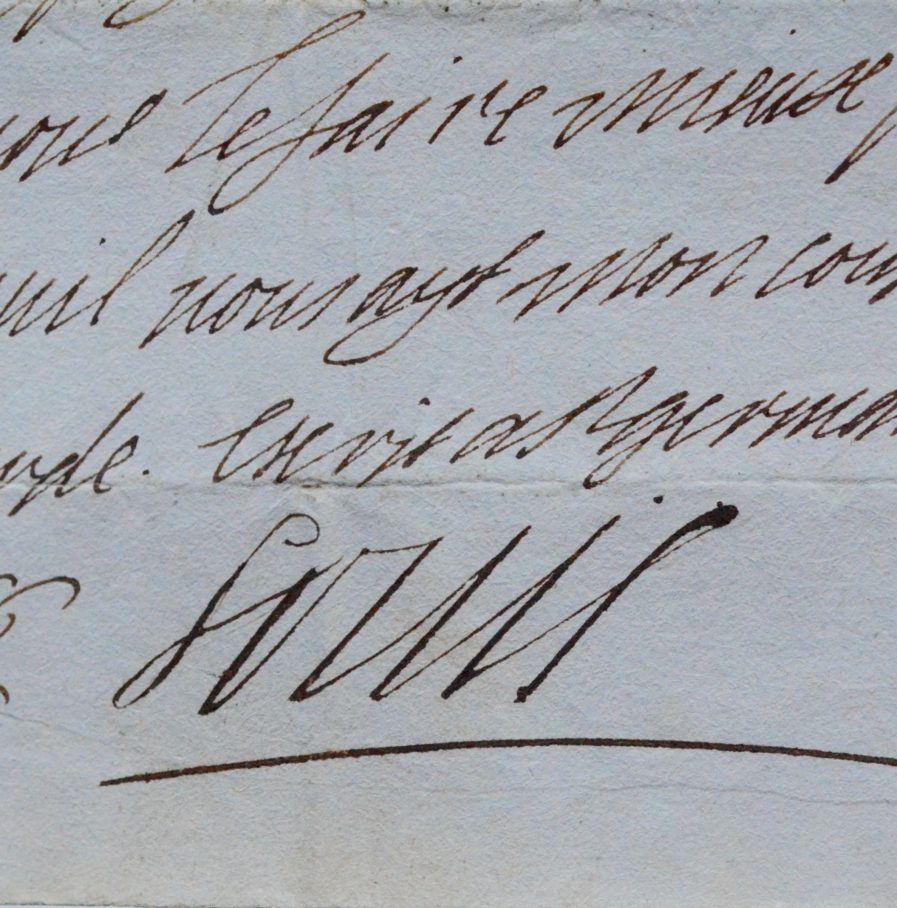 vous le faire mieux
quil vous ayt mon cou
arde. Escrit a St germa
Louis